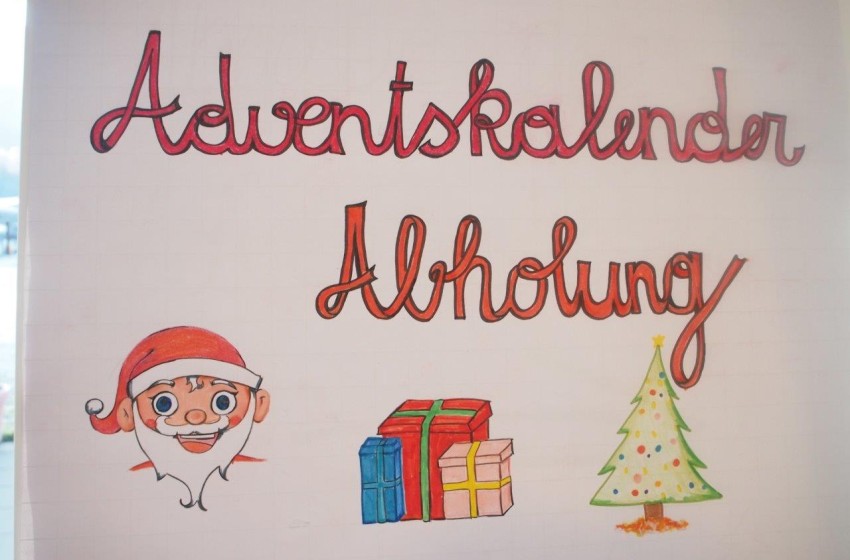 Adventskalender
Abholung